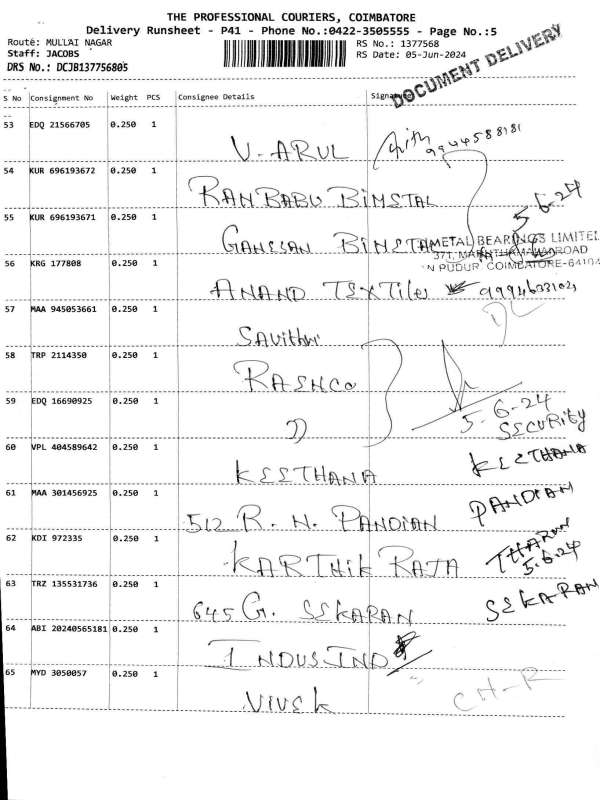 THE PROFESSIONAL COURIERS, COIMBATORE
Delivery Runsheet - P41 - Phone No.:0422-3505555 - Page No.:5
Route: MULLAI NAGAR
RS No.: 1377568
Staff: JACOBS
RS Date: 05-Jun-2024
DRS No.: DCJB137756805
DOCUMENT DELIVERY
S No Consignment No Weight PCS Consignee Details Signature
53 EDQ 21566705 0.250 1
V. ARUL 9944588181
54 KUR 696193672 0.250 1
RANBABU BIMETAL
5-6-24
55 KUR 696193671 0.250 1
GANESAN BIMETAL
METAL BEARINGS LIMITED
56 KRG 177808 0.250 1
N PUDUR COIMBATORE-64104
ANAND TEXTiles
57 MAA 945053661 0.250 1
SAVithri
58 TRP 2114350 0.250 1
RASHCO
59 EDQ 16690925 0.250 1
5-6-24
SECURITY
60 VPL 404589642 0.250 1
KEETHANA KEETHANA
61 MAA 301456925 0.250 1
512 R. N. PANDIAN PANDIAN
62 KDI 972335 0.250 1
KARTHIK RAJA THARUN
5.6.24
63 TRZ 135531736 0.250 1
645 G. SEKARAN SEKARAN
64 ABI 20240565181 0.250 1
INDUSIND
65 MYD 3050057 0.250 1
VIVEK